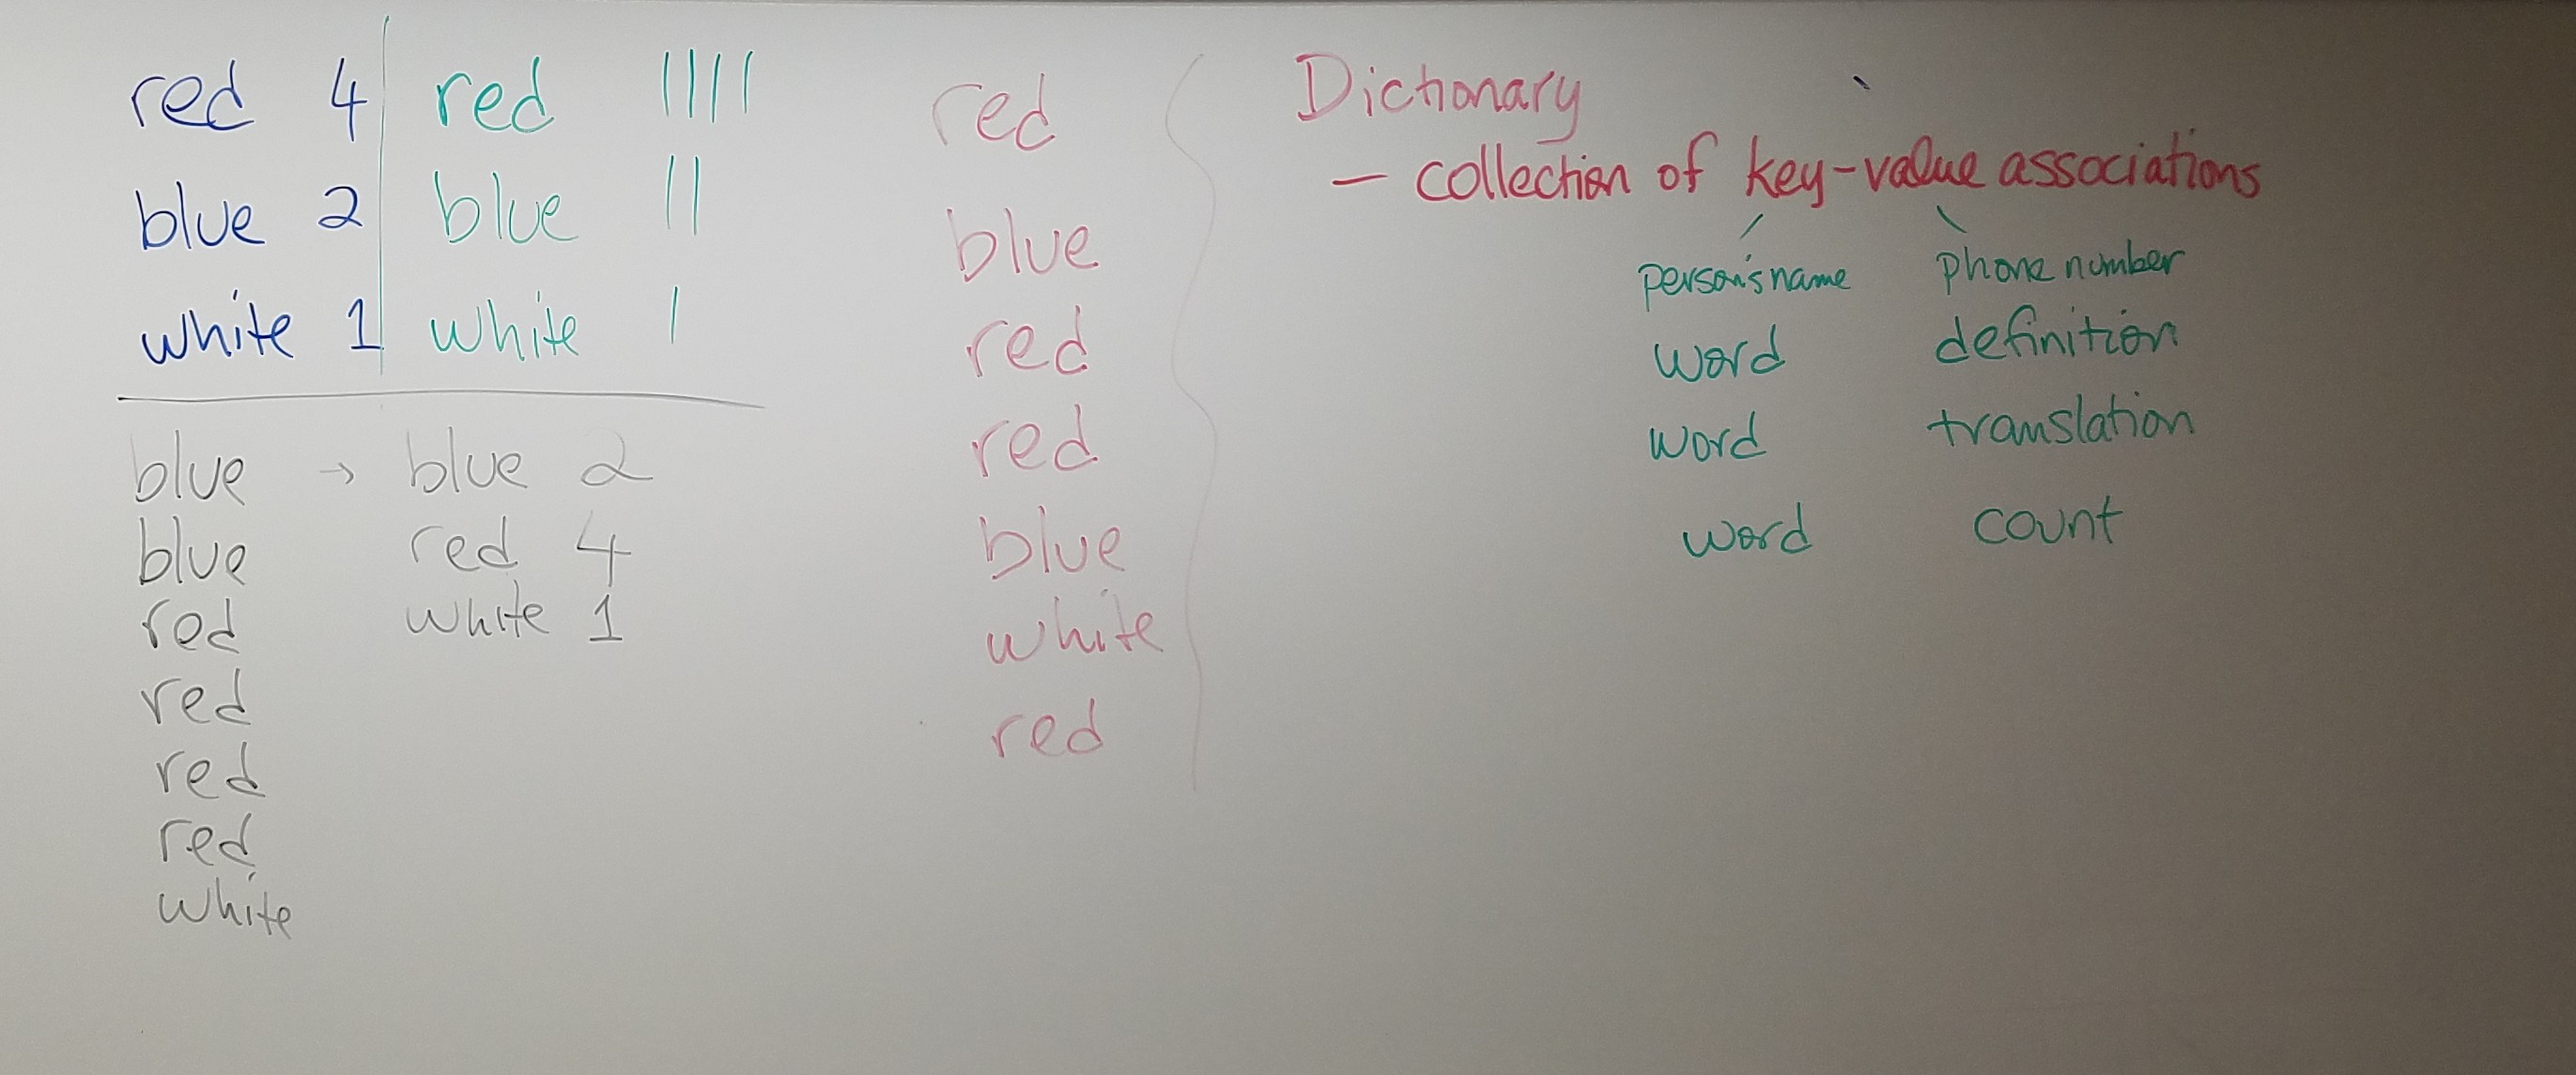 red 4
blue 2
white 1
red ||||
blue ||
white |
blue → blue 2
blue red 4
red white 1
red
red
red
white
red
blue
red
red
blue
white
red
Dictionary
- collection of key-value associations
person's name phone number
word definition
word translation
word count